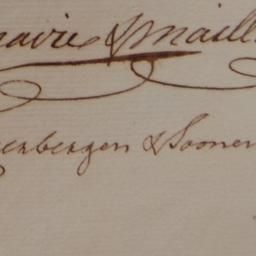 naires & Maill
enbergen & Soonen